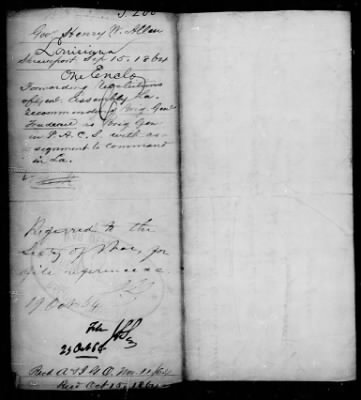 Gov Henry W. Allen
Louisiana
Shreveport Sep 15, 1864
One Enclo
Forwarding resolutions
of Gen'l Assembly La.
recommending Brig. Genl
as Brig Gen
in P. A. C. S. with as-
signment to command
in La.
Referred to the
Secty of War, for
file reference &c.
19 Oct 64
File
23 Oct 64
Recd A & I G O, Nov. 11/64
Recd Oct 15, 1864